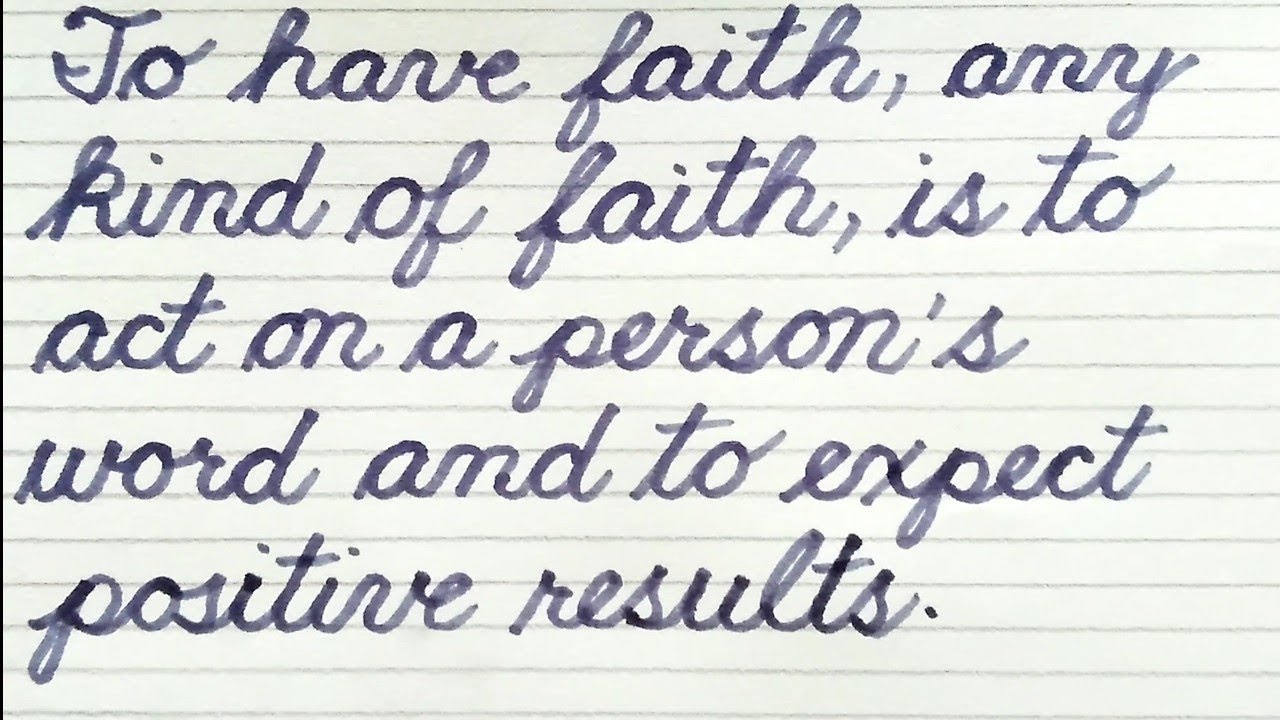 To have faith, any
kind of faith, is to
act on a person's
word and to expect
positive results.